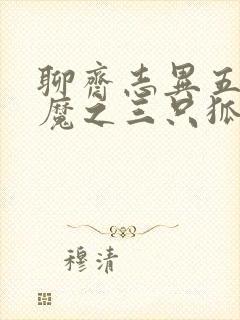 聊齋志異五
魔之三只狐
穆清